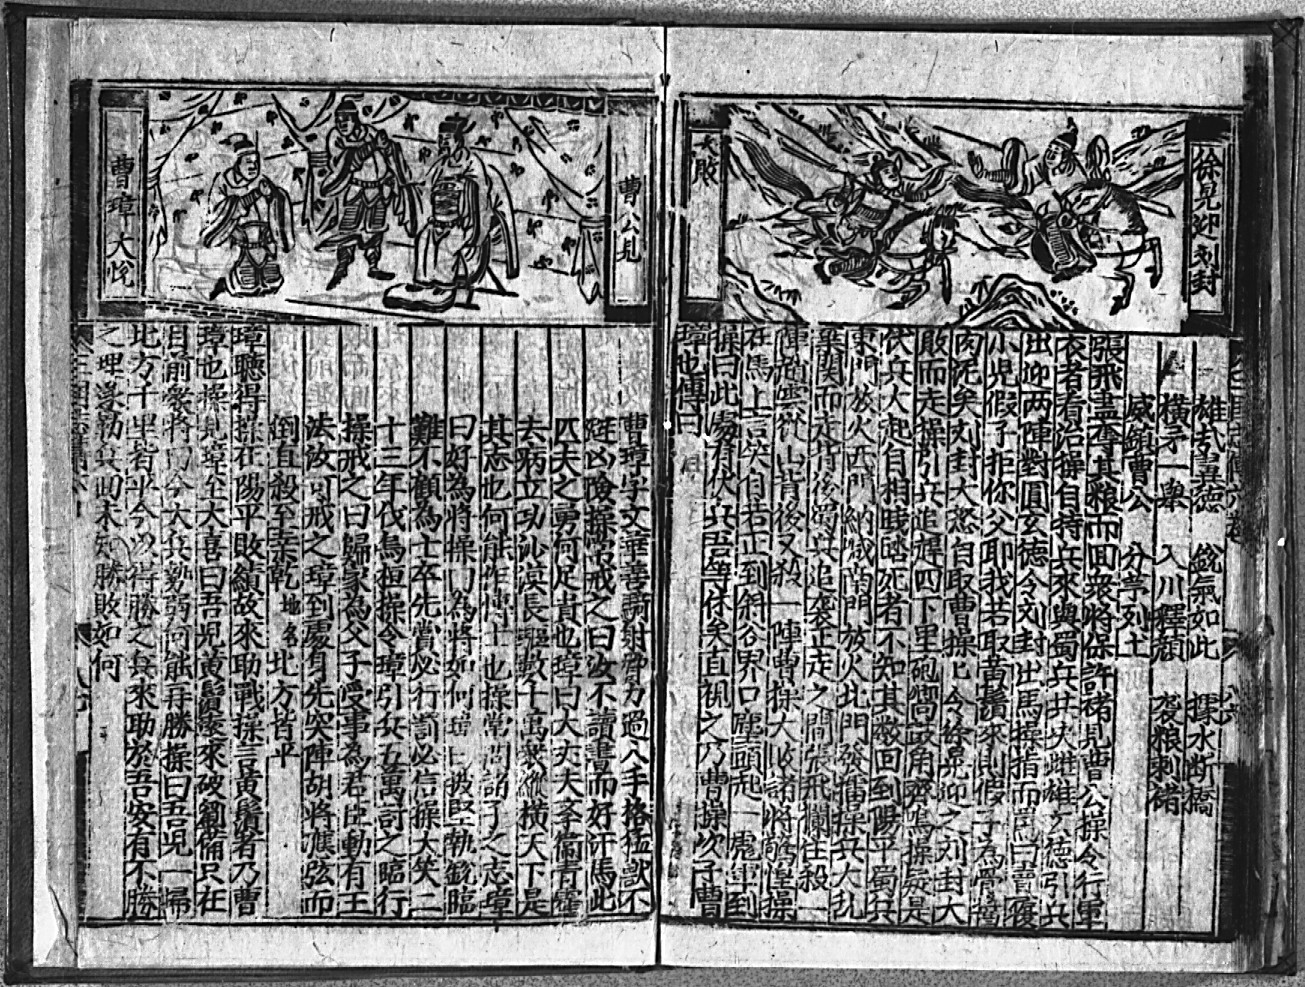 徐晃迎刘封
大敗
雄哉翼德　銳氣如此　據水断橋
橫矛一舉　入川釋顔　襲粮刺褚
威鎮曹公　分茅列土
張飛盡奪其粮而回衆將保許禇見曹公操令行軍
衣者看治操自持兵來與蜀兵共决雌雄玄德引兵
出迎两陣對圓玄德令刘封出馬操指而罵曰賣履
小兒假子拒你父耶我若取黃鬚來則假子為骨
肉泥矣刘封大怒自取曹操操令徐晃迎之刘封大
敗而走操引兵追趕四下里砲响鼓角齊鳴操疑是
伏兵火起自相踐踏死者不知其數回到陽平蜀兵
東門放火西門納喊南門放火北門發擂操兵大乱
棄関而走背後蜀兵追襲正走之間張飛攔住殺一
陣趙雲從山背後又殺一陣曹操大敗諸將驚惶操
在馬上言笑自若正到斜谷界口塵頭起一彪軍到
操曰此處有伏兵吾等休矣直視之乃曹操次子曹
璋也傳曰
曹公見
曹璋大悦
曹璋字文華善騎射膂力過人手格猛獸不
避凶險操常戒之曰汝不讀書而好汗馬此
匹夫之勇何足貴也璋曰大丈夫李衛青霍
去病立功沙漠長驅數十萬衆縱橫天下是
其志也何能作博士也操常問諸子之志璋
曰好為將操曰為將如何璋曰披堅執銳臨
難不顧為士卒先賞必行罰必信操大笑二
十三年代烏桓操令璋引兵五萬討之臨行
操戒之曰歸家為父子受事為君臣動有王
法汝可戒之璋到處身先突陣胡將應弦而
倒直殺至桑乾地名北方皆平
璋聽得操在陽平敗績故來助戰操言黃鬚者乃曹
璋也操見璋至大喜曰吾兒黃鬚家來破劉備只在
目前衆將曰今大兵勢弱何能再勝操曰吾兒一掃
北方千里若平今以得勝之兵來助於吾安有不勝
之理遂勒兵回未知勝敗如何